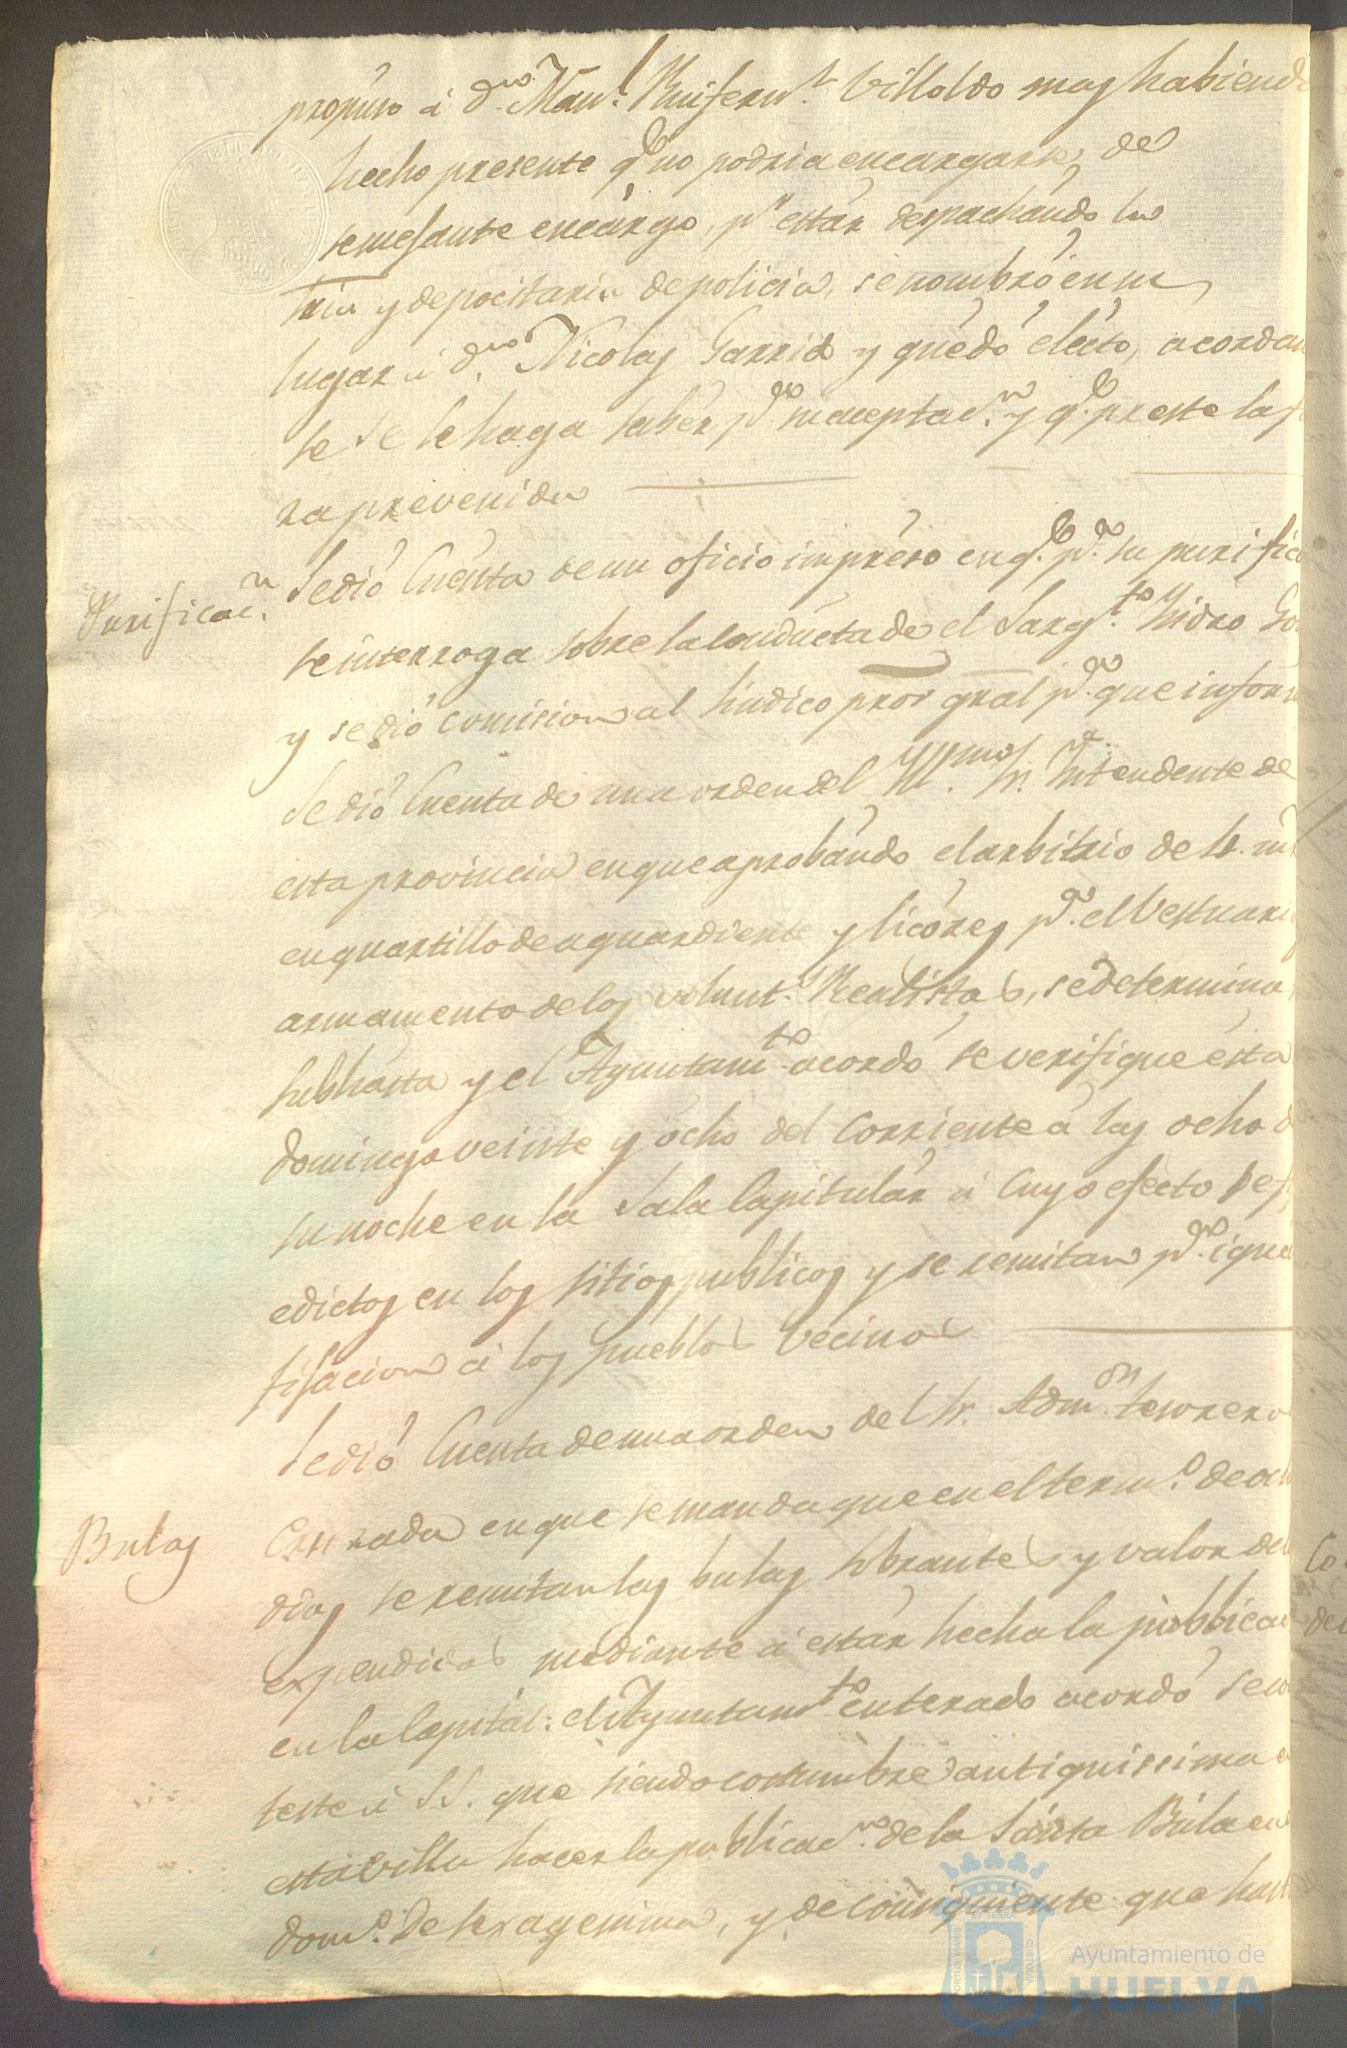 propuso á dn. Manl. Ruifernz. Villoldo mas habiend
hecho presente qe. no podria encargarse de
semejante encargo, pr. estar despachando la
tria y depocitaria de policia, se nombró en su
lugar á dn. Nicolas Garrido y quedó electo, acordan
se se le haga saber pa. su aceptacn. y qe. preste la
ra prevenida
Purificacn.
Se dió Cuenta de un oficio impreso en qe. pa. su purific
se interroga sobre la conducta de el Sargto. Ysidro
y se dió comision al Sindico pror gral pa. que infor
Se dió Cuenta de una orden del Yllmo. Sr. Yntendente de
esta provincia en que aprobando el arbitrio de
en quartillo de aguardiente y licores pa. el Vestuari
armamento de los volunts. Realistas, se determina
Subhasta y el Ayuntamto. acordó se verifique esta
domingo veinte y ocho del corriente á las ocho d
su noche en la Sala Capitular á Cuyo efecto se
edictos en los sitios publicos y se remitan pa. igua
fijacion á los pueblos Vecinos
Se dió Cuenta de una orden del Sr. Admon. tesorero
Bulas
Cruzada en que se manda que en el termo. de och
dias se remitan las bulas sobrantes y valor de
expendidas mediante á estar hecha la publicac
en la Capital: el Ayuntamto. enterado acordó se con
teste á SS. que siendo costumbre antiquissima e
esta villa hacer la publicacn. de la Santa Bula en
domo. de sexagesima, y de consiguiente que hast
Co
de
Ayuntamiento de
HUELVA